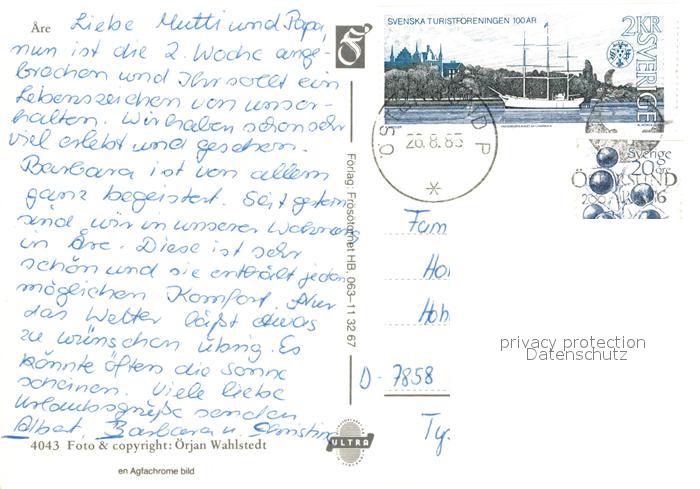 Åre
Liebe Mutti und Papa,
nun ist die 2. Woche ange-
brochen und Ihr sollt ein
Lebenszeichen von uns er-
halten. Wir haben schon sehr
viel erlebt und gesehen.
Barbara ist von allem
ganz begeistert. Seit gestern
sind wir in unserer
in Åre. Diese ist sehr
schön und sie enthält jeden
möglichen Komfort. Nur
das Wetter läßt etwas
zu wünschen übrig. Es
könnte öfters die Sonne
scheinen. Viele liebe
Urlaubsgrüße senden
Albert, Barbara u. Christina
4043 Foto & copyright: Örjan Wahlstedt
en Agfachrome bild
Förlag: Frösötornet HB, 063-11 32 67
ULTRA
SVENSKA TURISTFÖRENINGEN 100 ÅR
2 KR
SVERIGE
Sverige
20
26.8.85
Fam
Ho
Hoh
D-7858
privacy protection
Datenschutz